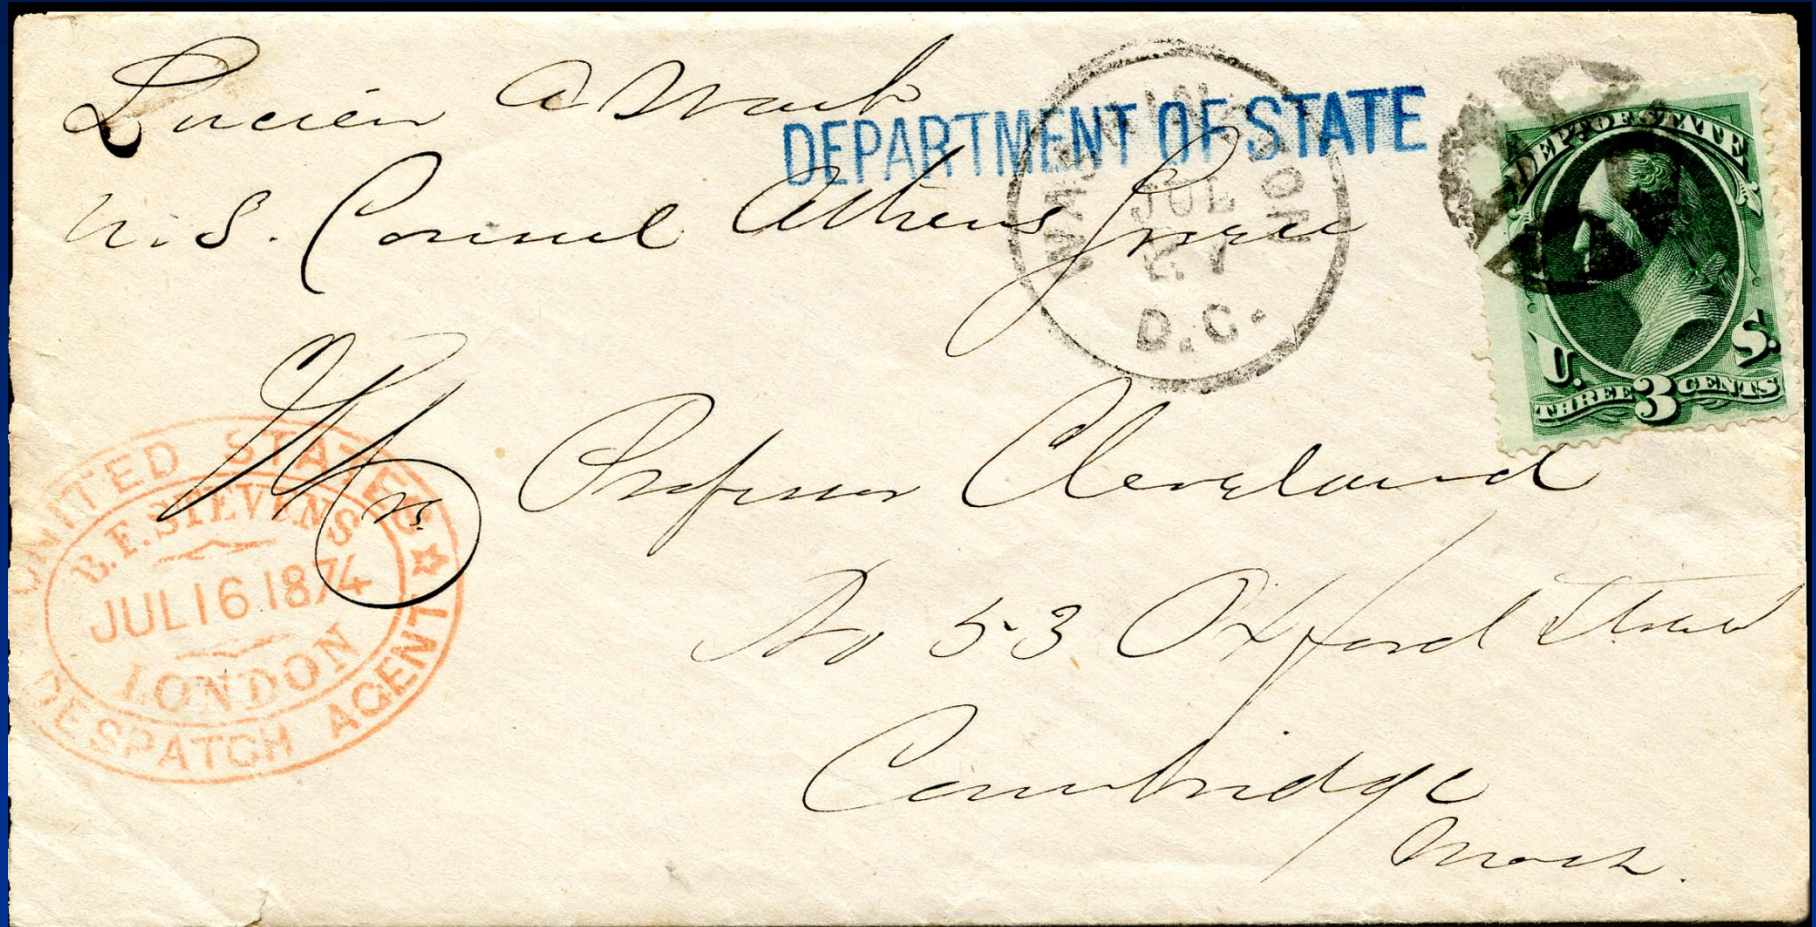 Lucien A
DEPARTMENT OF STATE
U.S. Consul Athens Greece
WASHINGTON
JUL
27
D.C.
DEPT. OF STATE
U. S.
THREE 3 CENTS
Mrs. Professor Cleveland
No 53 Oxford Street
Cambridge
Mass.
UNITED STATES
B.F. STEVENS
JUL 16 1874
LONDON
DESPATCH AGENT